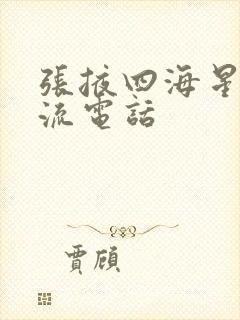 張掖四海星
流電話
賈頎